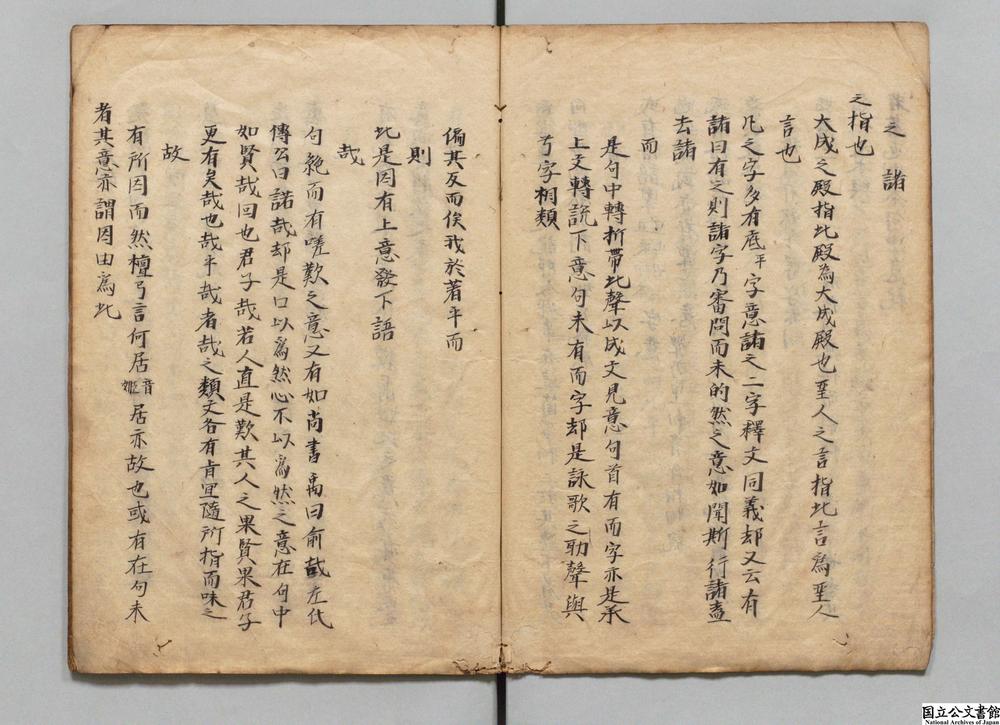 之 諸
之指也
大成之殿指此殿為大成殿也聖人之言指此言為聖人
言也
凡之字多有底平字意諸之二字釋文同義却又云有
諸曰有之則諸字乃審問而未的然之意如聞斯行諸盍
去諸
而
是句中轉折帶此聲以成文見意句首有而字亦是承
上文轉說下意句末有而字却是詠歌之助聲與
兮字相類
偏其反而俟我於著乎而
則
此是因有上意發下語
哉
句絕而有嗟歎之意又有如尚書禹曰俞哉左氏
傳公曰諾哉却是口以為然心不以為然之意在句中
如賢哉回也君子哉若人直是歎其人之果賢果君子
更有矣哉也哉乎哉者哉之類文各有旨宜隨所指而味之
故
有所因而然檀弓言何居音姬居亦故也或有在句末
者其意亦謂因由為此
国立公文書館
National Archives of Japan